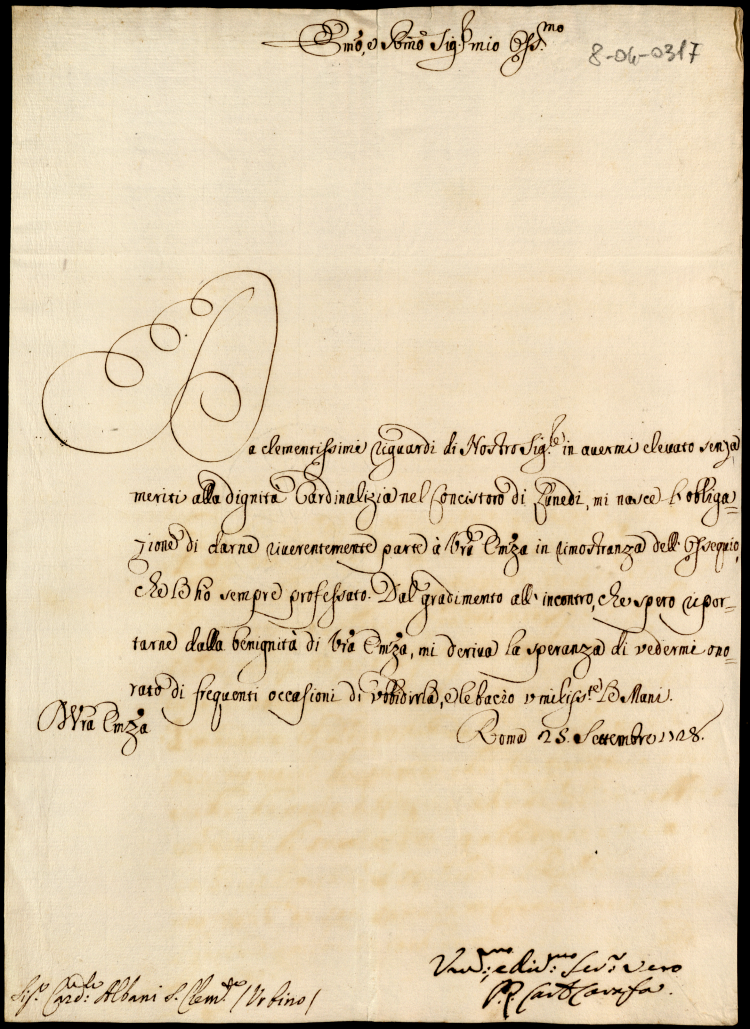 Em̃o, e Rm̃o Sig.r mio Oss.mo
8-06-0317
Da clementissimi riguardi di Nostro Sig.re in avermi elevato senza
meriti alla dignità Cardinalizia nel Concistoro di Lunedì, mi nasce l'obliga=
zione di darne riverentemente parte à Vr̃a Em̃za in rimostranza dell'Ossequio,
che le ho sempre professato. Dal gradimento all'incontro, che spero ripor=
tarne dalla benignità di Vr̃a Em̃za, mi deriva la speranza di vedermi ono=
rato di frequenti occasioni di ubbidirla, e le bacio umiliss.te le Mani.
D Vr̃a Em̃za
Roma 25. Settembre 1728.
Um.mo e div.mo Ser.r vero
P. Card Carafa.
Sig.r Card.le Albani S. Clem.te (Urbino)